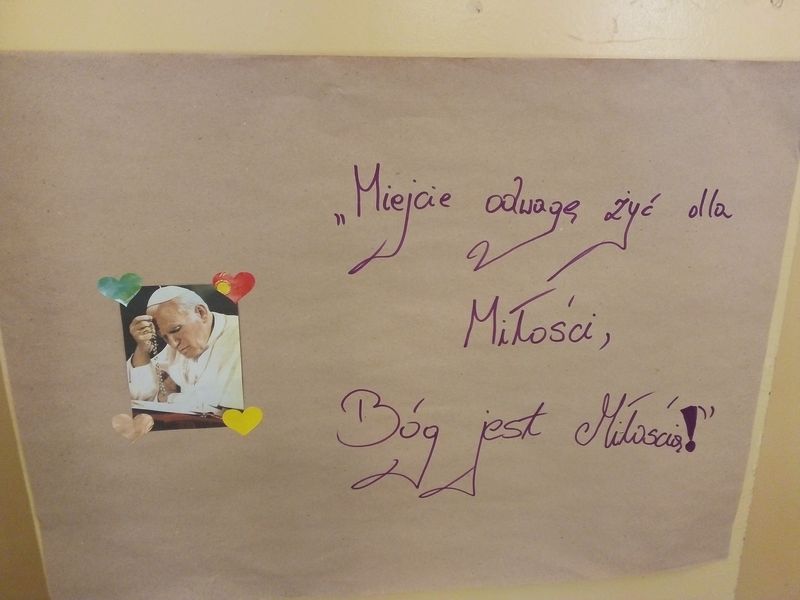 „Miejcie odwagę żyć dla
Miłości,
Bóg jest Miłością!”